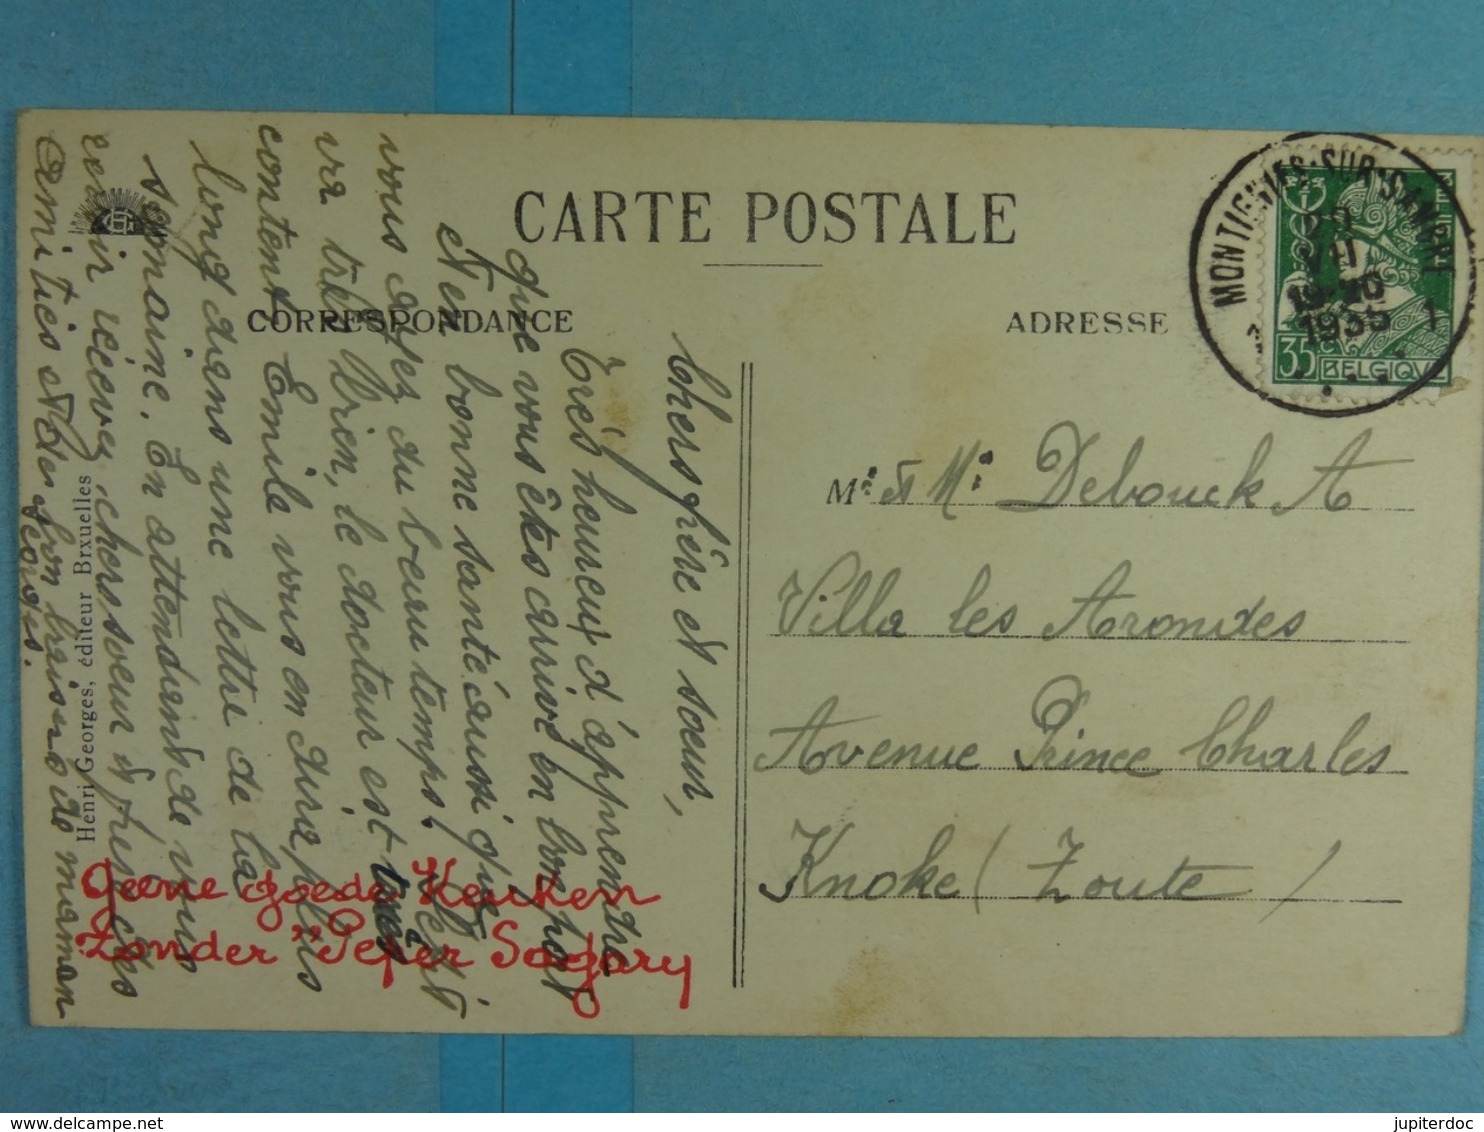 CARTE POSTALE
CORRESPONDANCE
ADRESSE
MONTIGNIES-SUR-SAMBRE 1
VII
1935
35 BELGIQUE
Chers frère et soeur,
Très heureux d'apprendre
que vous êtes arrivé en bon port
et en bonne santé, aussi que
vous avez du beau temps. C'est
va très bien, le docteur est très
content. Emile vous en dira plus
long dans une lettre de la
semaine. En attendant de vous
revoir, recevez, chers soeur et frère, les
amitiés et les bons baisers de maman
Georges.
Mr et Me Debouck A
Villa les Arondes
Avenue Prince Charles
Knoke (Zoute)
Geene goede Keuken
Zonder "Peper Sagary
Henri Georges, éditeur Brxuelles
jupiterdoc